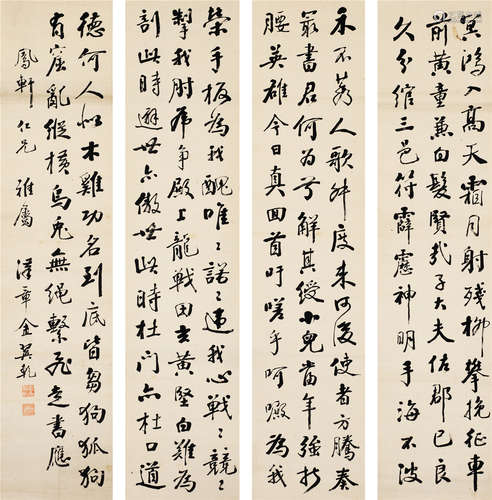 冥鴻入高天霜月射殘柳攀挽征車
前黃童兼白髮賢哉子大夫佐郡已良
久分綰三邑符霹靂神明手海不波
禾不莠人歌何度來何後使者方騰奏
最書君何為兮解其綬小兒當年強折
腰英雄今日真回首吁嗟乎呵噘為我
榮手板為我醜唯唯諾諾違我心戰戰兢兢
掣我肘席爭殿上龍戰田玄黃堅白難為
剖此時避世亦傲世此時杜門亦杜口道
德何人似木雞功名到底皆芻狗狐狗
有窟亂縱橫烏兔無繩繫飛走書應
鳳軒仁兄雅屬 漢章金